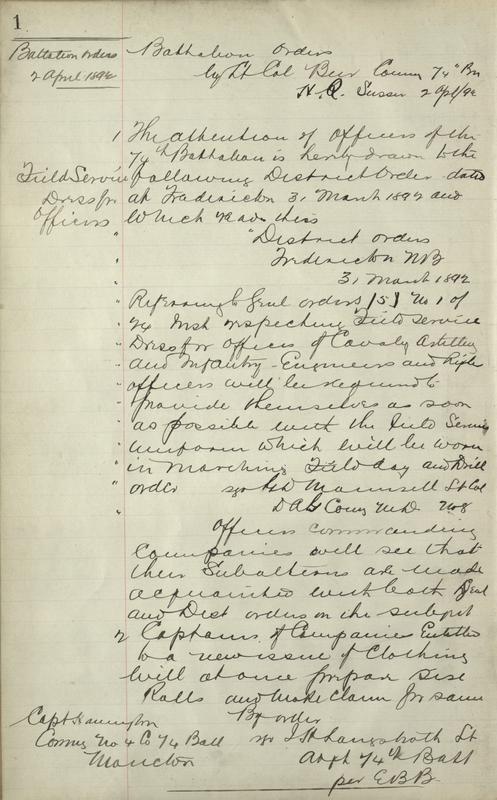 1
Battalion orders
2 April 1892
Battalion orders
by Lt Col Beer Comg 74th Bn
H.Q. Sussex 2 Apl/92
1 The attention of Officers of the
74th Battalion is hereby drawn to the
Field Service following District Order dated
Dress for at Fredericton 31 March 1892 and
Officers which reads thus
"District orders
Fredericton NB
31 March 1892
Referring to Genl orders (5) No 1 of
24 Inst respecting Field Service
Dress for officers of Cavalry Artillery
and Infantry - Engineers and Rifle
officers will be required to
provide themselves as soon
as possible with the Field Service
uniform which will be worn
in Marching Field day and Drill
order sgd Geo Maunsell Lt Col
DAG Comg M.D. No 8
Officers commanding
Companies will see that
their Subalterns are made
acquainted with both Genl
and Dist orders on the subject
2 Captains of Companies Entitled
to a new issue of Clothing
will at once prepare Size
Rolls and make claim for same
By order
Capt Hannington
Comg No 4 Co 74 Batt
Moncton
sgd J H Langstroth Lt
Adjt 74th Batt
per E.B.B.